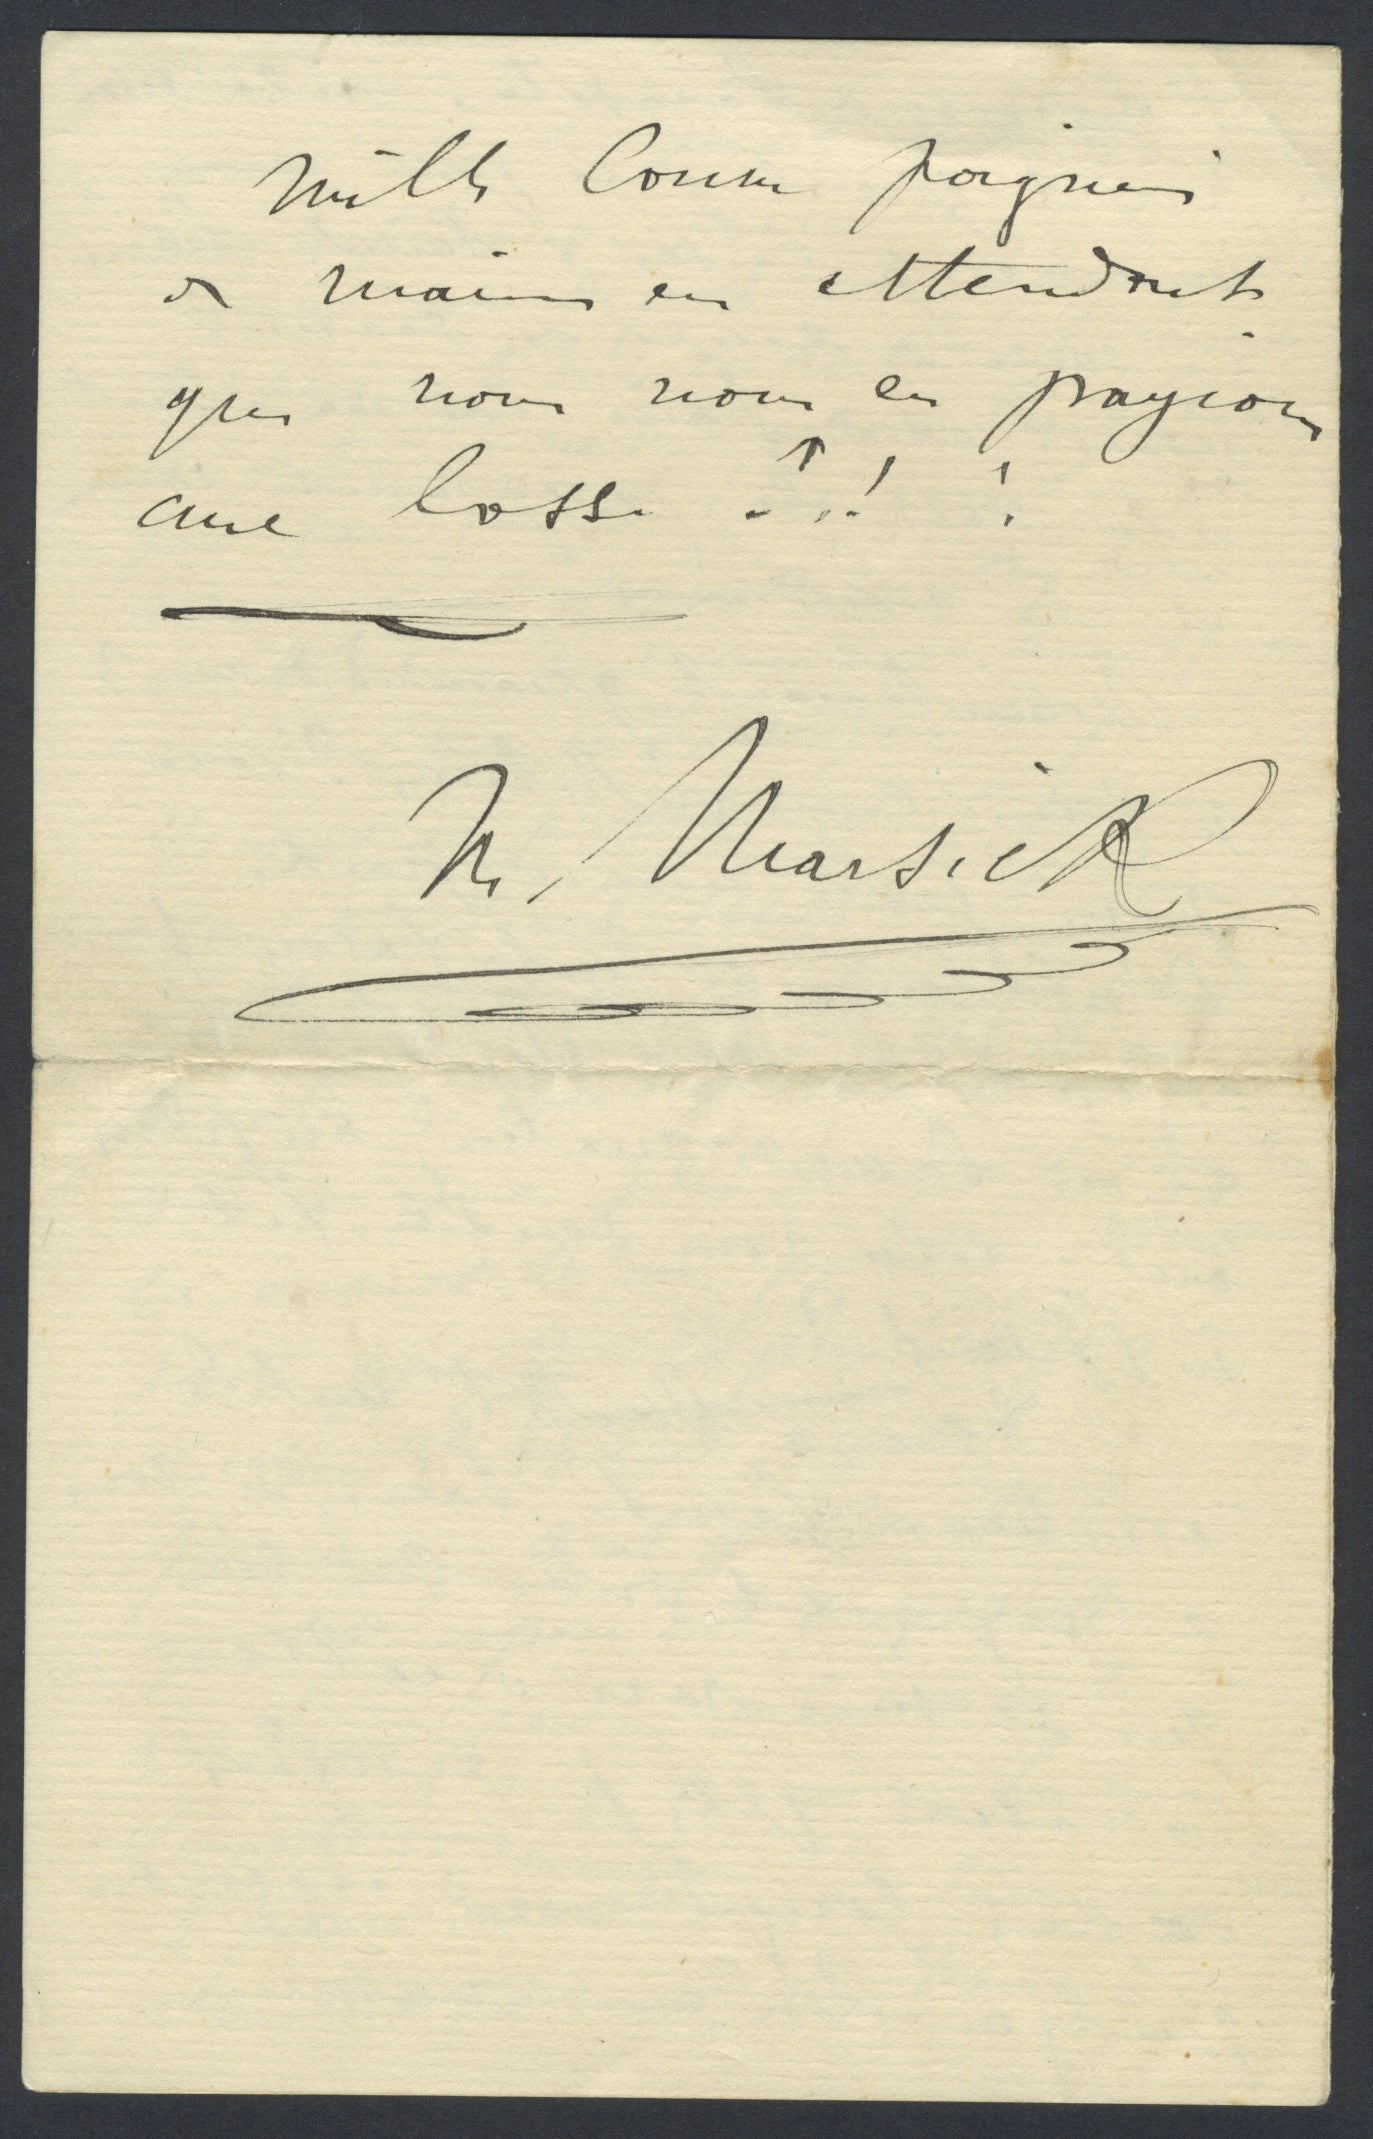 Mille bonnes poignées
de mains en attendant
que nous nous en payions
une bosse ? ! !
M. Marsick